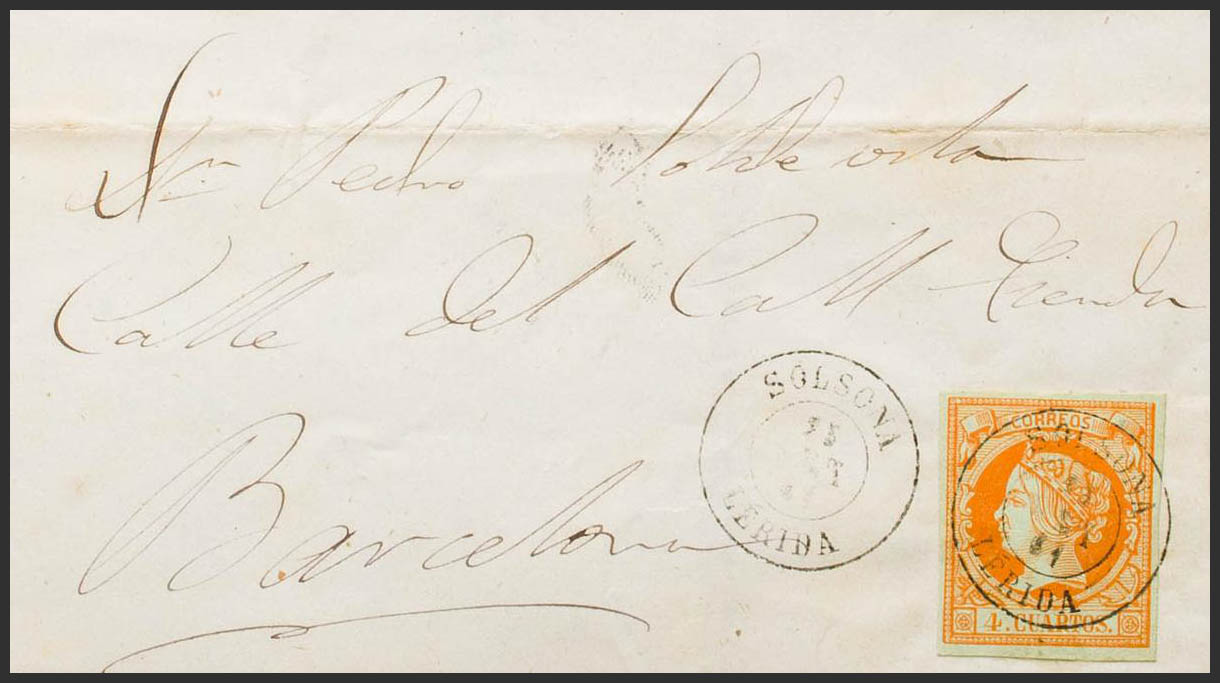 Sr. Dn Pedro
Calle del Call Tienda
Barcelona
SOLSONA
LERIDA
CORREOS
SOLSONA
61
LERIDA
4 CUARTOS.